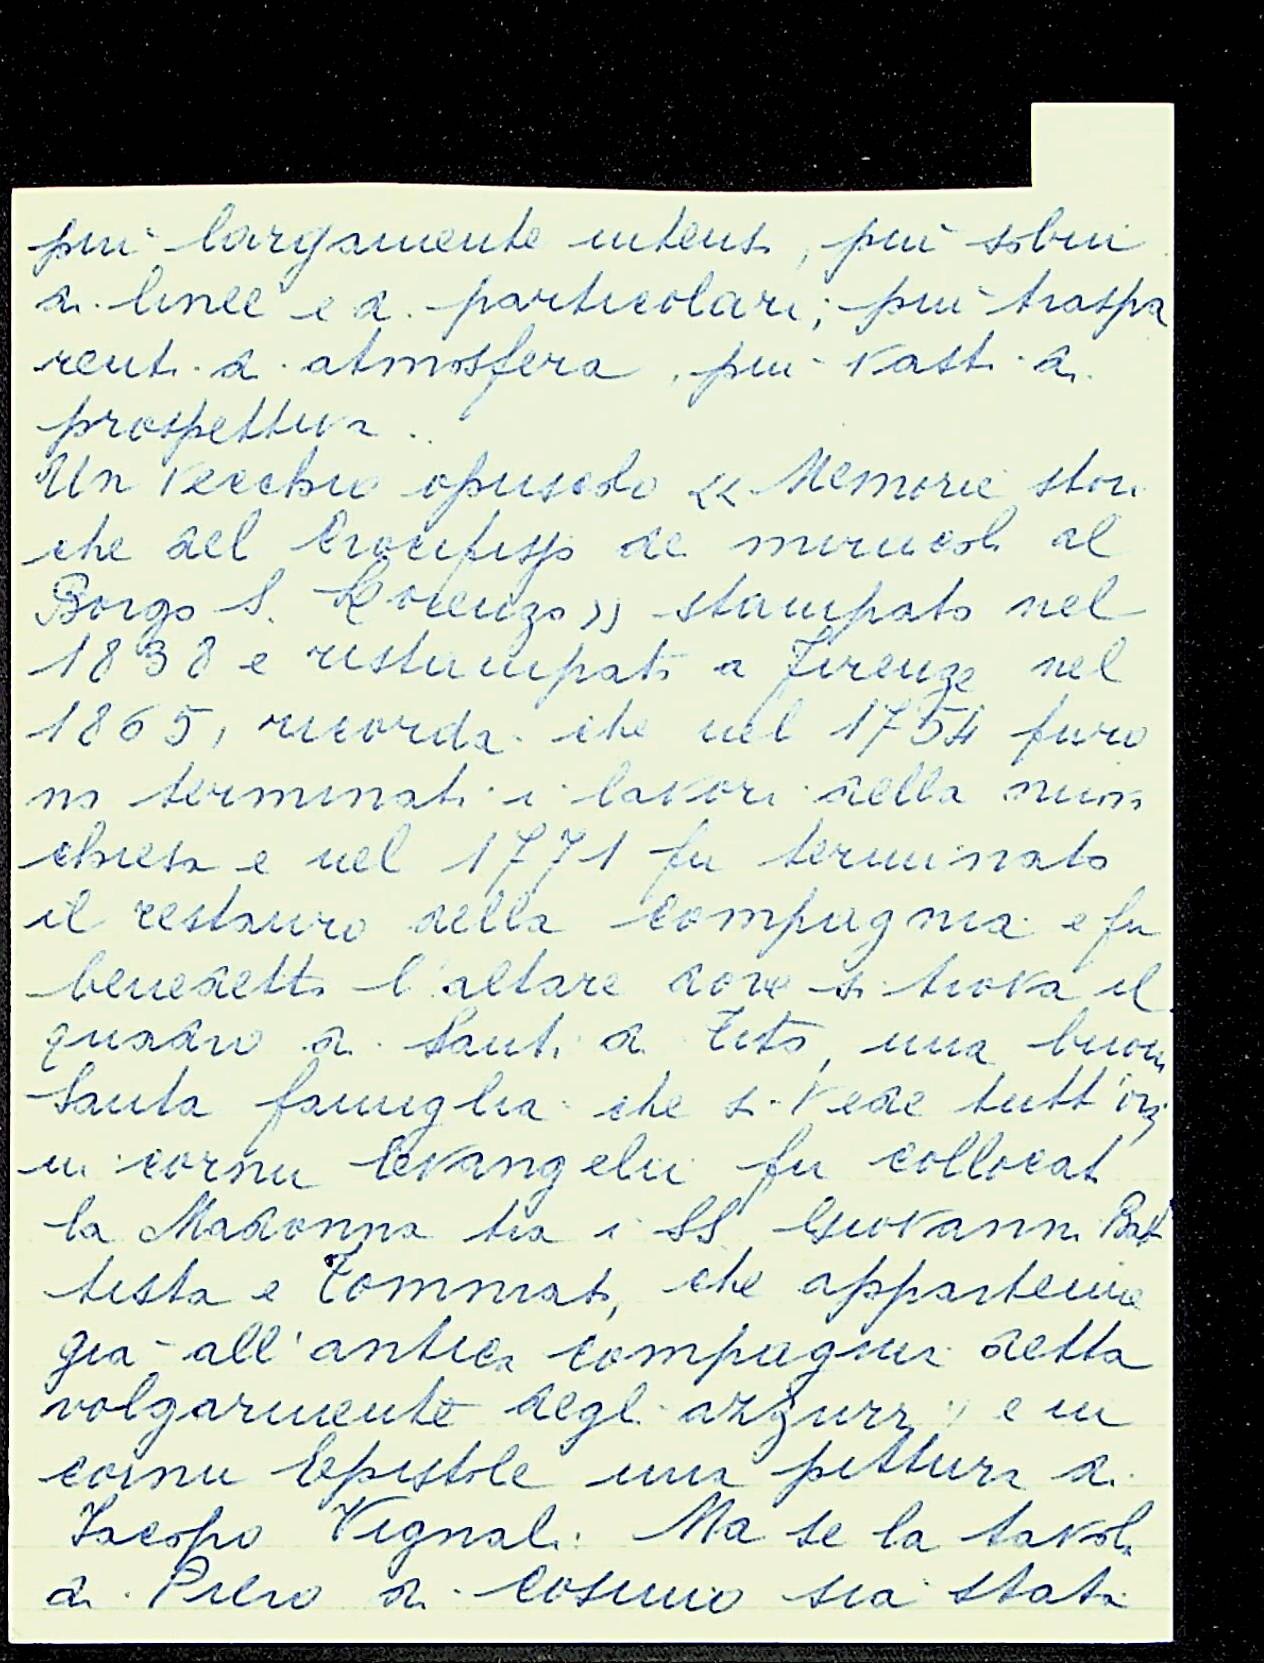 più largamente intensi, più sobri
di linee e di particolari; più traspa
renti di atmosfera, più vasti di
prospettiva.
Un vecchio opuscolo « Memorie stori
che del Crocifisso dei miracoli al
Borgo S. Lorenzo » stampato nel
1838 e ristampato a Firenze nel
1865, ricorda che nel 1754 furo
no terminati i lavori della nuova
chiesa e nel 1771 fu terminato
il restauro della compagnia e fu
benedetto l'altare dove si trova il
quadro di Santi di Tito, una buona
Santa famiglia che si vede tutt'ora
in cornu Evangelii fu collocata
la Madonna tra i SS Giovanni Bat
tista e Tommaso, che appartenne
già all'antica compagnia detta
volgarmente degli azzurri, e in
cornu Epistole una pittura di
Jacopo Vignali. Ma se la tavola
di Piero di Cosimo sia stata